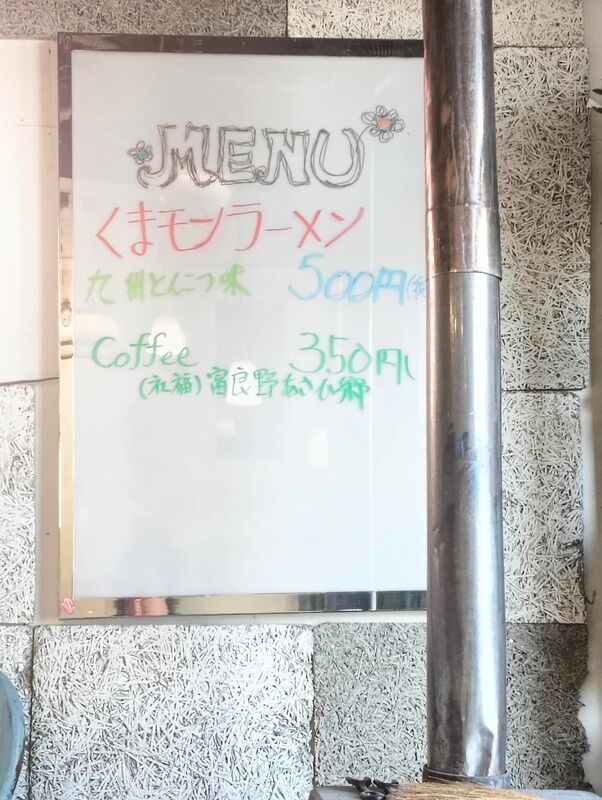 MENU
くまモンラーメン
九州とんこつ味 500円(税
Coffee 350円
(社福)富良野あさひ郷